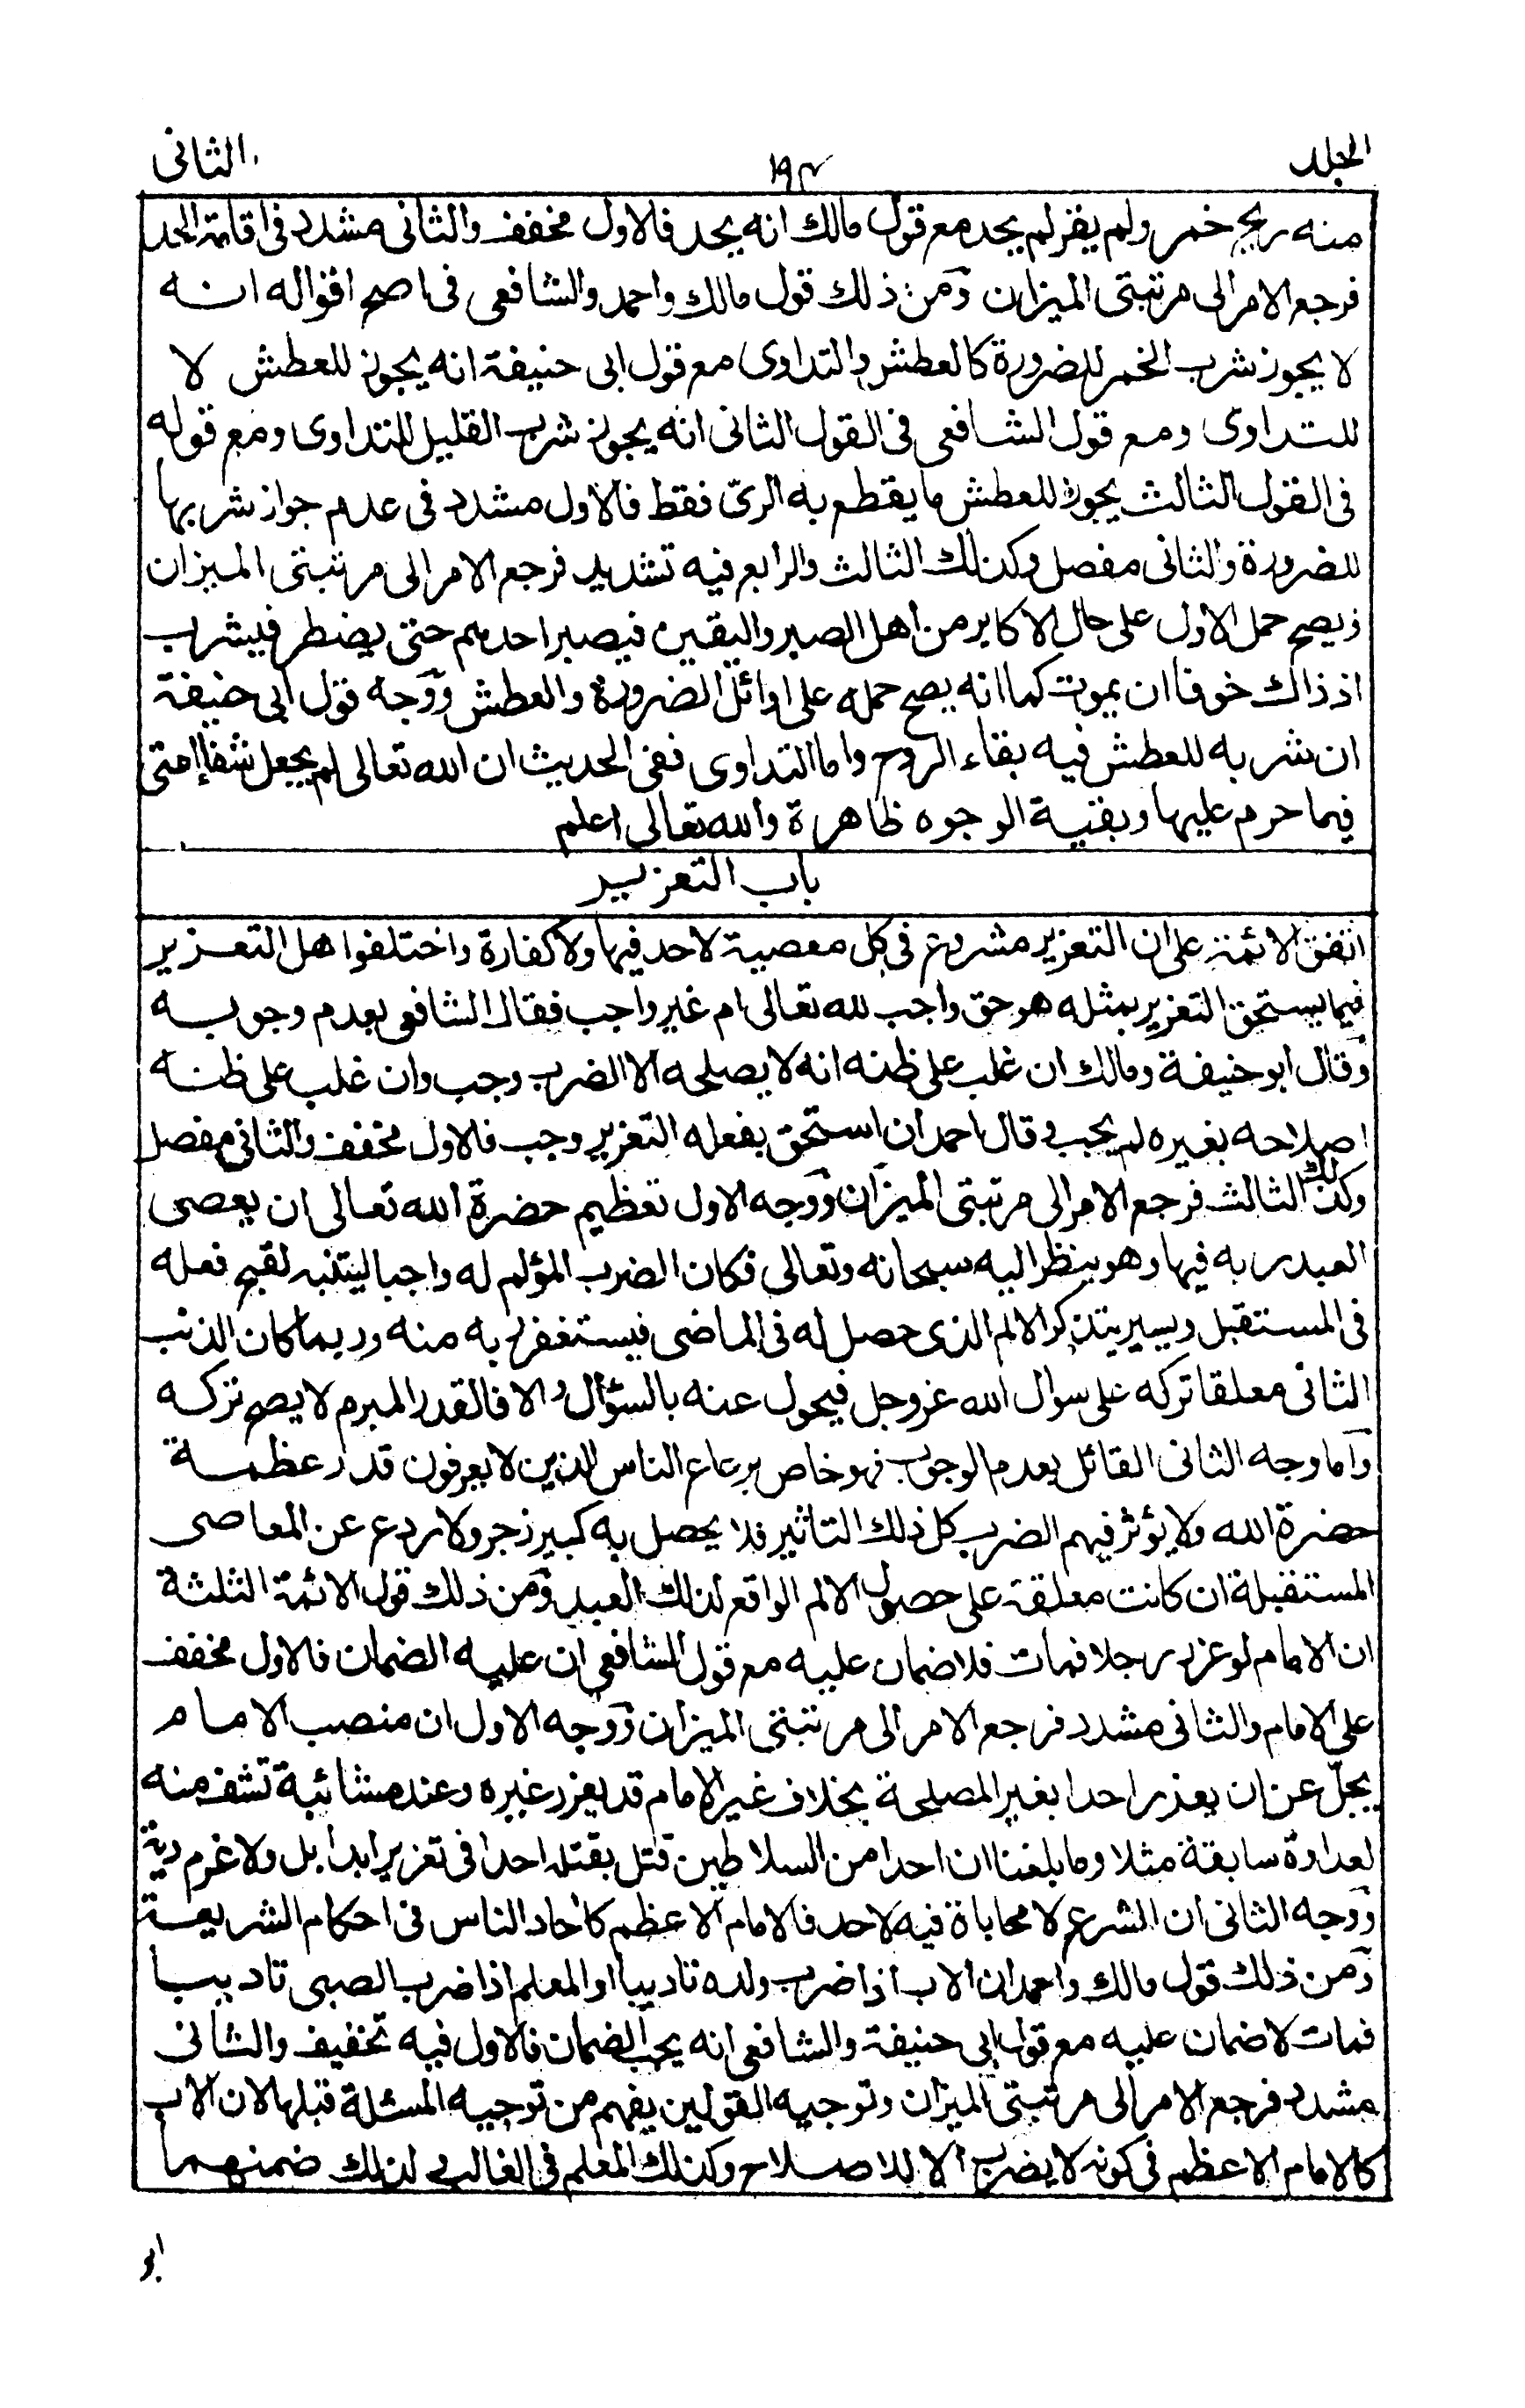 الجلد
١٩٢
الثانى
منه ريح خمر ولم يقر لم يحد مع قول مالك انه يحد فالاول مخفف والثانى مشدد فى اقامة الحد
فرجع الامر الى مرتبتى الميزان ومن ذلك قول مالك واحمد والشافعى فى اصح اقواله انه
لا يجوز شرب الخمر للضرورة كالعطش والتداوى مع قول ابى حنيفة انه يجوز للعطش لا
للتداوى ومع قول الشافعى فى القول الثانى انه يجوز شرب القليل للتداوى ومع قوله
فى القول الثالث يجوز للعطش ما يقطع به الرىّ فقط فالاول مشدد فى عدم جواز شربها
للضرورة والثانى مفصل وكذلك الثالث والرابع فيه تشديد فرجع الامر الى مرتبتى الميزان
ويصح حمل الاول على حال الاكابر من اهل الصبر واليقين فيصبر احدهم حتى يضطر فيشرب
اذ ذاك خوفا ان يموت كما انه يصح حمله على اوائل الضرورة والعطش ووجه قول ابى حنيفة
ان شربه للعطش فيه بقاء الروح واما التداوى ففى الحديث ان الله تعالى لم يجعل شفاء امتى
فيما حرم عليها وبقية الوجوه ظاهرة والله تعالى اعلم
باب التعزير
اتفق الائمة على ان التعزير مشروع فى كل معصية لا حد فيها ولا كفارة واختلفوا هل التعزير
فيما يستحق التعزير بمثله هو حق واجب لله تعالى ام غير واجب فقال الشافعى بعدم وجوبه
وقال ابو حنيفة ومالك ان غلب على ظنه انه لا يصلحه الا الضرب وجب وان غلب على ظنه
اصلاحه بغيره لم يجب وقال احمد ان استحق بفعله التعزير وجب فالاول مخفف والثانى مفصل
وكذلك الثالث فرجع الامر الى مرتبتى الميزان ووجه الاول تعظيم حضرة الله تعالى ان يعصى
العبد ربه فيها وهو ينظر اليه سبحانه وتعالى فكان الضرب المؤلم له واجبا ليتنبه لقبح فعله
فى المستقبل ويسير يتذكر الالم الذى حصل له فى الماضى فيستغفر ربه منه وربما كان الذنب
الثانى معلقا تركه على سوال الله عزوجل فيحول عنه بالسؤال والا فالقدر المبرم لا يصح تركه
واما وجه الثانى القائل بعدم الوجوب فهو خاص برعاع الناس الذين لا يعرفون قدر عظمة
حضرة الله ولا يؤثر فيهم الضرب كل ذلك التاثير فلا يحصل به كبير زجر ولا ردع عن المعاصى
المستقبلة ان كانت معلقة على حصول الالم الواقع لذلك العبد ومن ذلك قول الائمة الثلثة
ان الامام لو عزر رجلا فمات فلا ضمان عليه مع قول الشافعى ان عليه الضمان فالاول مخفف
على الامام والثانى مشدد فرجع الامر الى مرتبتى الميزان ووجه الاول ان منصب الامام
يجلّ عن ان يعذر احدا بغير المصلحة بخلاف غير الامام قد يعزر غيره وعنده شائبة تشف منه
لعداوة سابقة مثلا وما بلغنا ان احدا من السلاطين قتل بقتله احدا فى تعزير ابدا بل ولا غرم دية
ووجه الثانى ان الشرع لا محاباة فيه لاحد فالامام الاعظم كآحاد الناس فى احكام الشريعة
ومن ذلك قول مالك واحمد ان الاب اذا ضرب ولده تاديبا او المعلم اذا ضرب الصبى تاديبا
فمات لا ضمان عليه مع قول ابى حنيفة والشافعى انه يجب الضمان فالاول فيه تخفيف والثانى
مشدد فرجع الامر الى مرتبتى الميزان وتوجيه القولين يفهم من توجيه المسئلة قبلها لان الاب
كالامام الاعظم فى كونه لا يضرب الا للاصلاح وكذلك المعلم فى الغالب لذلك ضمنهما
ابو